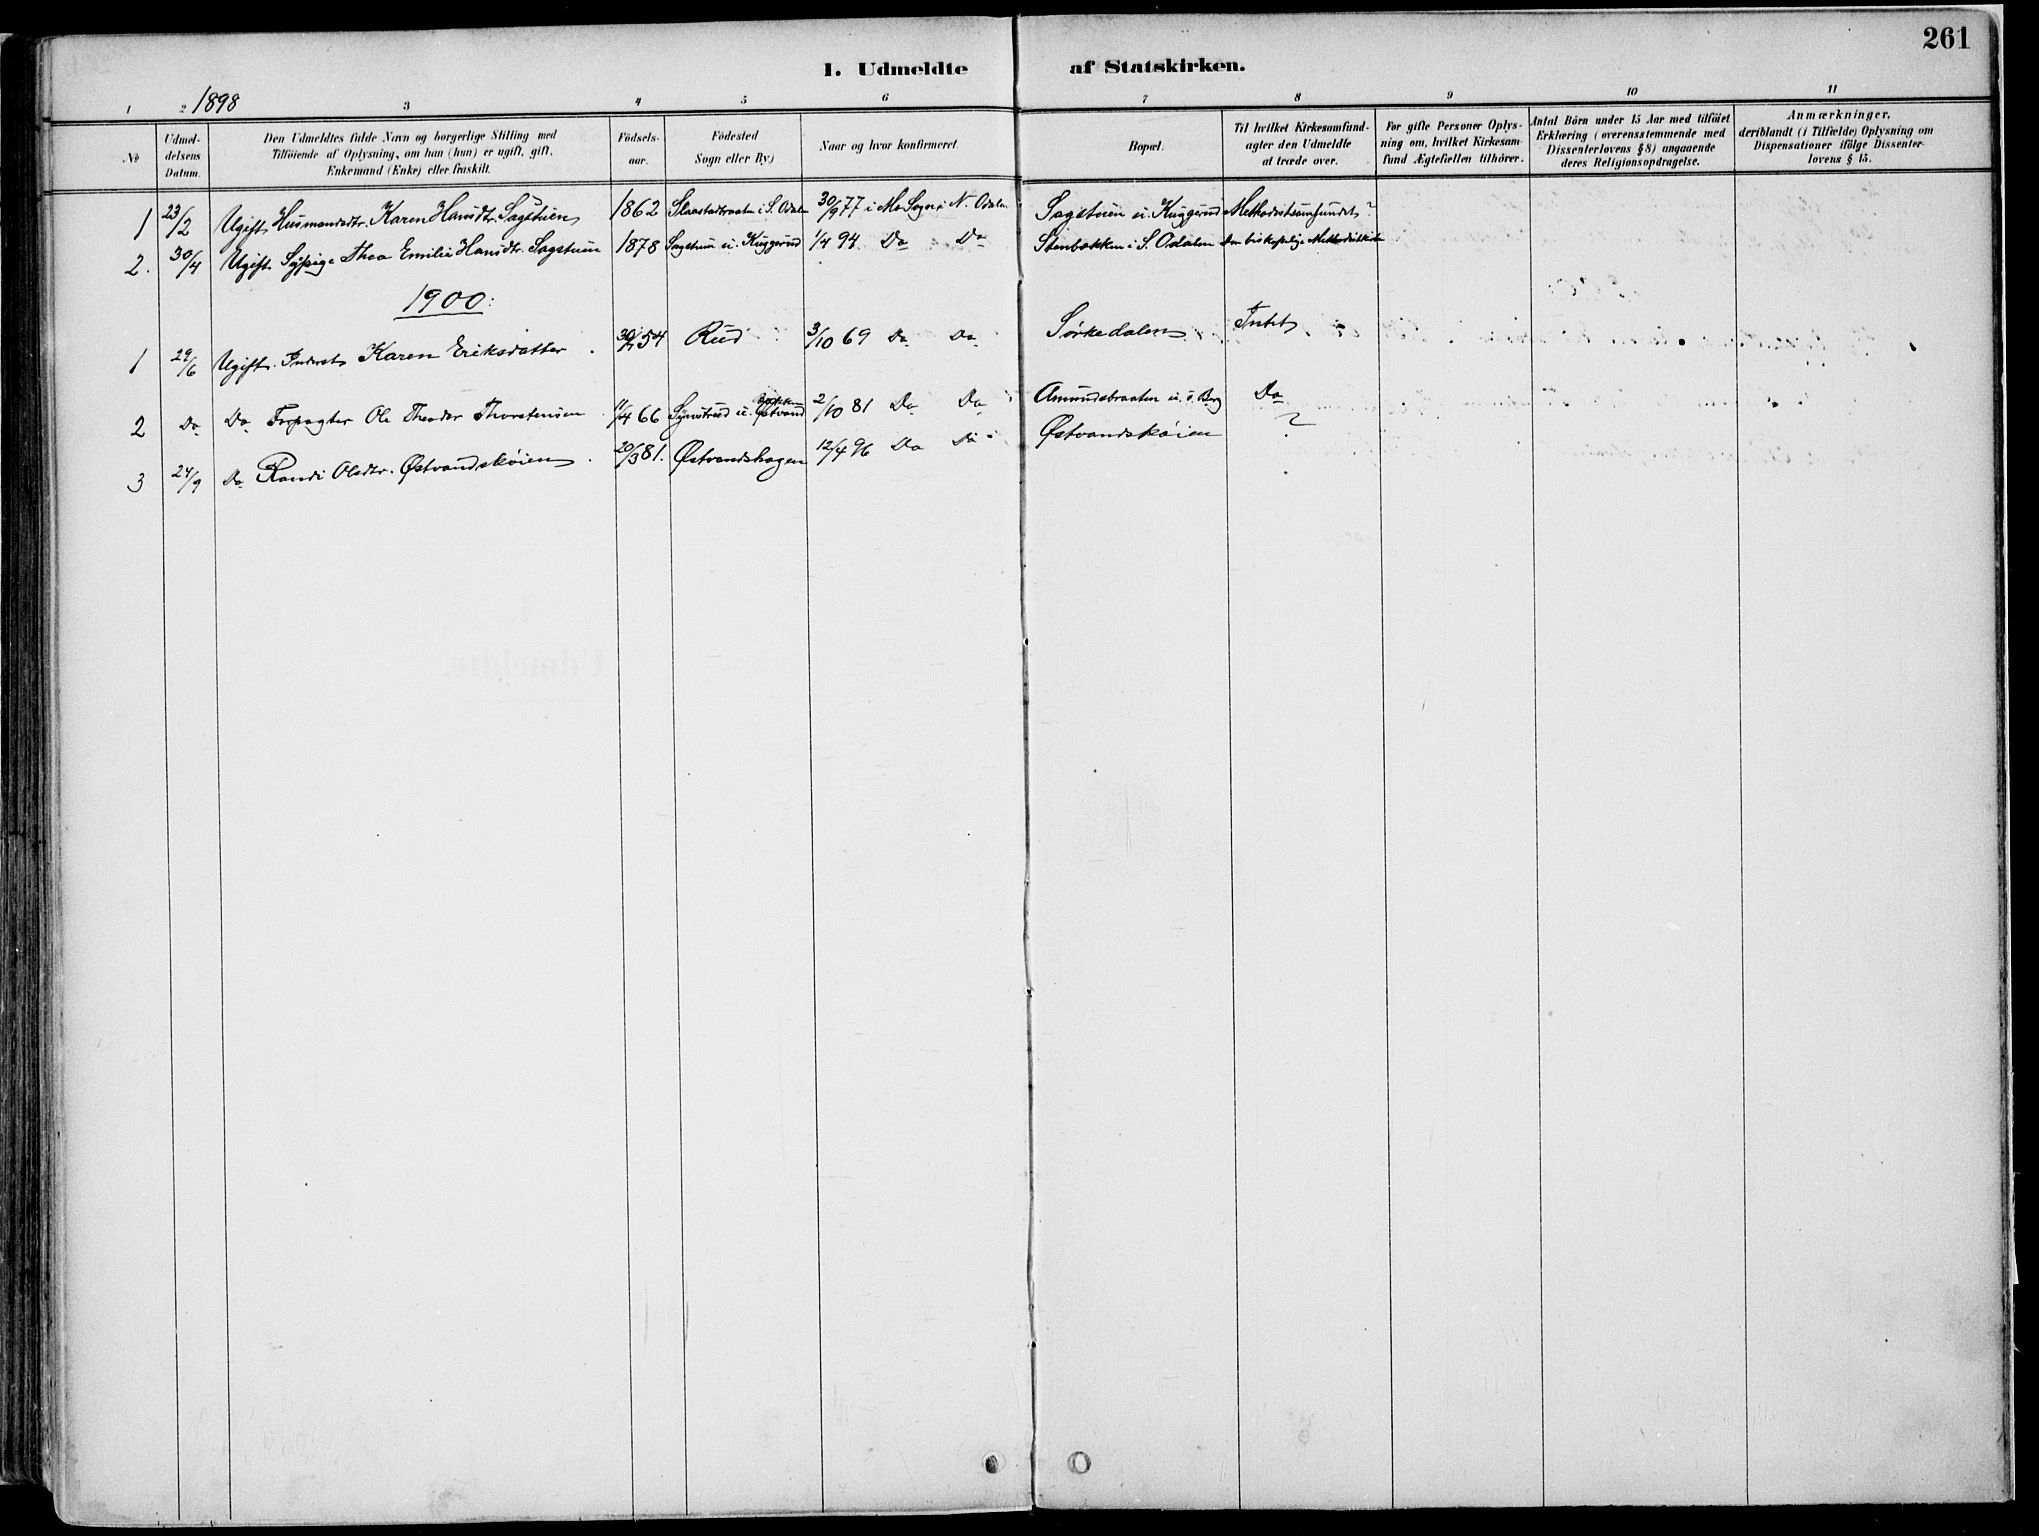 261
I. Udmeldte af Statskirken.
1 2 1898 3 4 5 6 7 8 9 10 11
No
Udmel-
delsens
Datum.
Den Udmeldtes fulde Navn og borgerlige Stilling med
Tilföiende af Oplysning, om han (hun) er ugift, gift,
Enkemand (Enke) eller fraskilt.
Födsels-
aar.
Födested
Sogn eller By)
Naar og hvor konfirmeret.
Bopæl.
Til hvilket Kirkesamfund
agter den Udmeldte
at træde over.
For gifte Personer Oplys-
ning om, hvilket Kirkesam-
fund Ægtefællen tilhörer.
Antal Börn under 15 Aar med tilföiet
Erklæring (overensstemmende med
Dissenterlovens § 8) angaaende
deres Religionsopdragelse.
Anmærkninger,
deriblandt (i Tilfælde) Oplysning om
Dispensationer ifölge Dissenter-
lovens § 15.
1 23/2 Ugift Husmandsdtr. Karen Hansdtr. Sagstuen 1862 Slaastadbraaten i S. Odalen 30/9 77 i Mo Sogn i N. Odalen Sagstuen u. Kuggerud Methodistsamfundet?
2. 30/4 Ugift Sypige Thea Emilie Hansdtr. Sagstuen 1878 Sagstuen u. Kuggerud 1/4 94 Do Do Stenbækken i S. Odalen Den biskopelige Methodistkirke
1900:
1 29/6 Ugift Inderst Karen Eriksdatter 54 Rud 3/10 69 Do Do Sørkedalen Intet
2 Do Do Forpagter Ole Theodor Thorstensen 11/4 66 Synstrud u. Østvand 2/10 81 Do Do Amundsbraaten u. ö. Berg Do
3 24/9 Do Randi Olsdtr. Østvandskøien 20/3 81. Østvandshagen 12/4 96 Do Do Østvandskøien ?